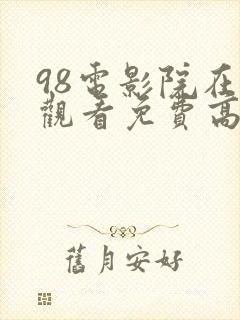 98電影院在
觀看免費高
舊月安好